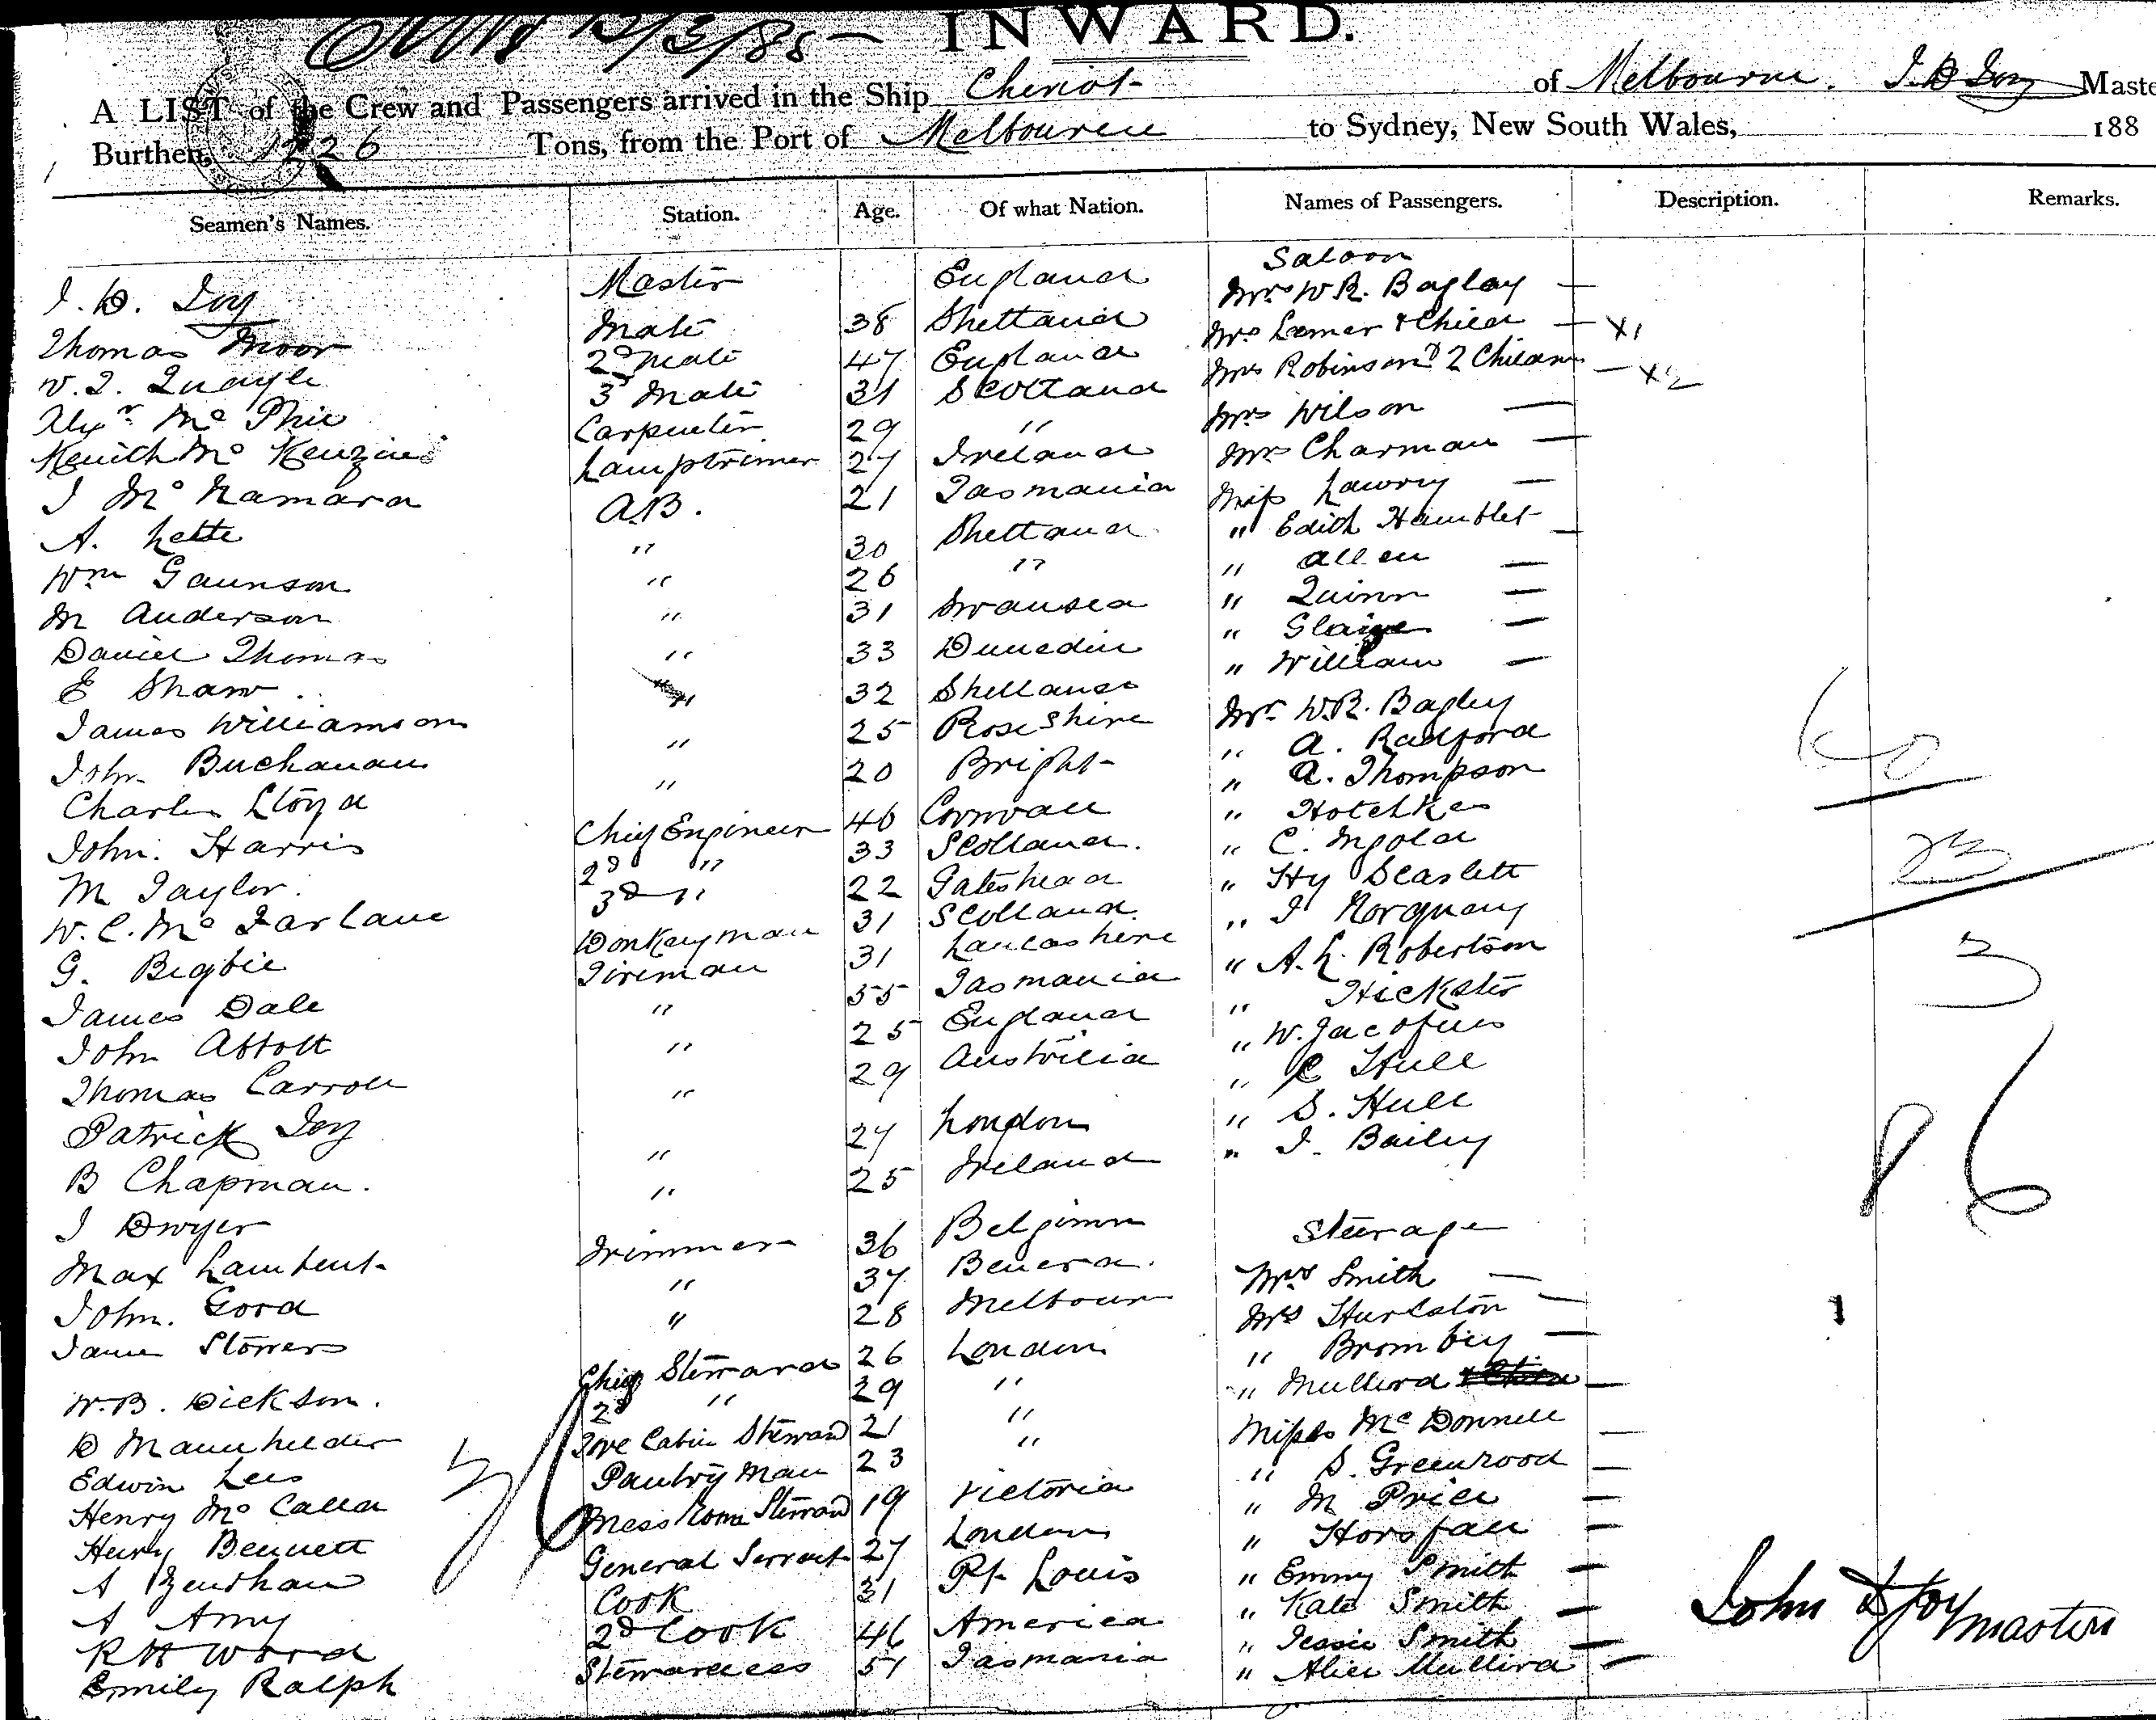 12/3/85
INWARD.
A LIST of the Crew and Passengers arrived in the Ship Cheviot of Melbourne. J. D. Joy Maste
Burthen, 1226 Tons, from the Port of Melbourne to Sydney, New South Wales, 188
Seamen's Names. Station. Age. Of what Nation. Names of Passengers. Description. Remarks.
Saloon
J. D. Joy Master England Mrs W R. Bagley —
Thomas Moor Mate 38 Shetland Mrs Lamer & Child — X1
W. J. Quayle 2d Mate 47 England Mrs Robinson & 2 Children — X2
Alexr Mc Phie 3d Mate 31 Scotland Mrs Wilson —
Kenith Mc Kenzie Carpenter 29 " Mrs Charman —
J Mc Namara Lamptrimer 27 Ireland Miss Lawry —
A. Lette A.B. 21 Tasmania " Edith Hamblet —
Wm Gaunson " 30 Shetland " Allen —
M Anderson " 26 " " Quinn —
Daniel Thomas " 31 Swansea "
E Shaw " 33 Dunedin " William —
James Williamson " 32 Shetland Mr W.R. Bagley
John Buchanan " 25 Rose Shire " A. Radford
Charles Lloyd " 20 Bright " A. Thompson
John Harris Chief Engineer 40 Cornwall " Hotchkes
M Taylor 2d " 33 Scotland " C. Ingold
W. C. Mc Farlane 3d " 22 Gateshead " Hy Scarlett
G. Bigbie Donkeyman 31 Scotland " J Norquay
James Dale Fireman 31 Lancashire " A. L. Robertson
John Abbott " 55 Tasmania "
Thomas Carroll " 25 England " W.
Patrick Joy " 29 Australia " C Hull
B Chapman " 27 London " S. Hull
J Dwyer " 25 Ireland " J. Bailey
Steerage
Max Lambent Trimmer 36 Belgium Mrs Smith —
John Gord " 37 Mrs Hurlston —
James Stowers " 28 Melbourn " Brombey —
W. B. Dickson Chief Steward 26 London " Mullird —
D 2d " 29 " Misses Mc Donnell —
Edwin Lees Fore Cabin Steward 21 " " S. Greenwood —
Henry Mc Calla Pantry Man 23 " " M Price —
Henry Bennett Mess Room Steward 19 Victoria " Horsfall —
A General Servant 27 London " Emmy Smith —
A Amy Cook 31 Pt Louis " Kate Smith —
R H Wood 2d Cook 46 America " Jessie Smith —
Emily Ralph Stewardess 51 Tasmania " Alice Mullird —
60
23
3
86
John D Joy
Master